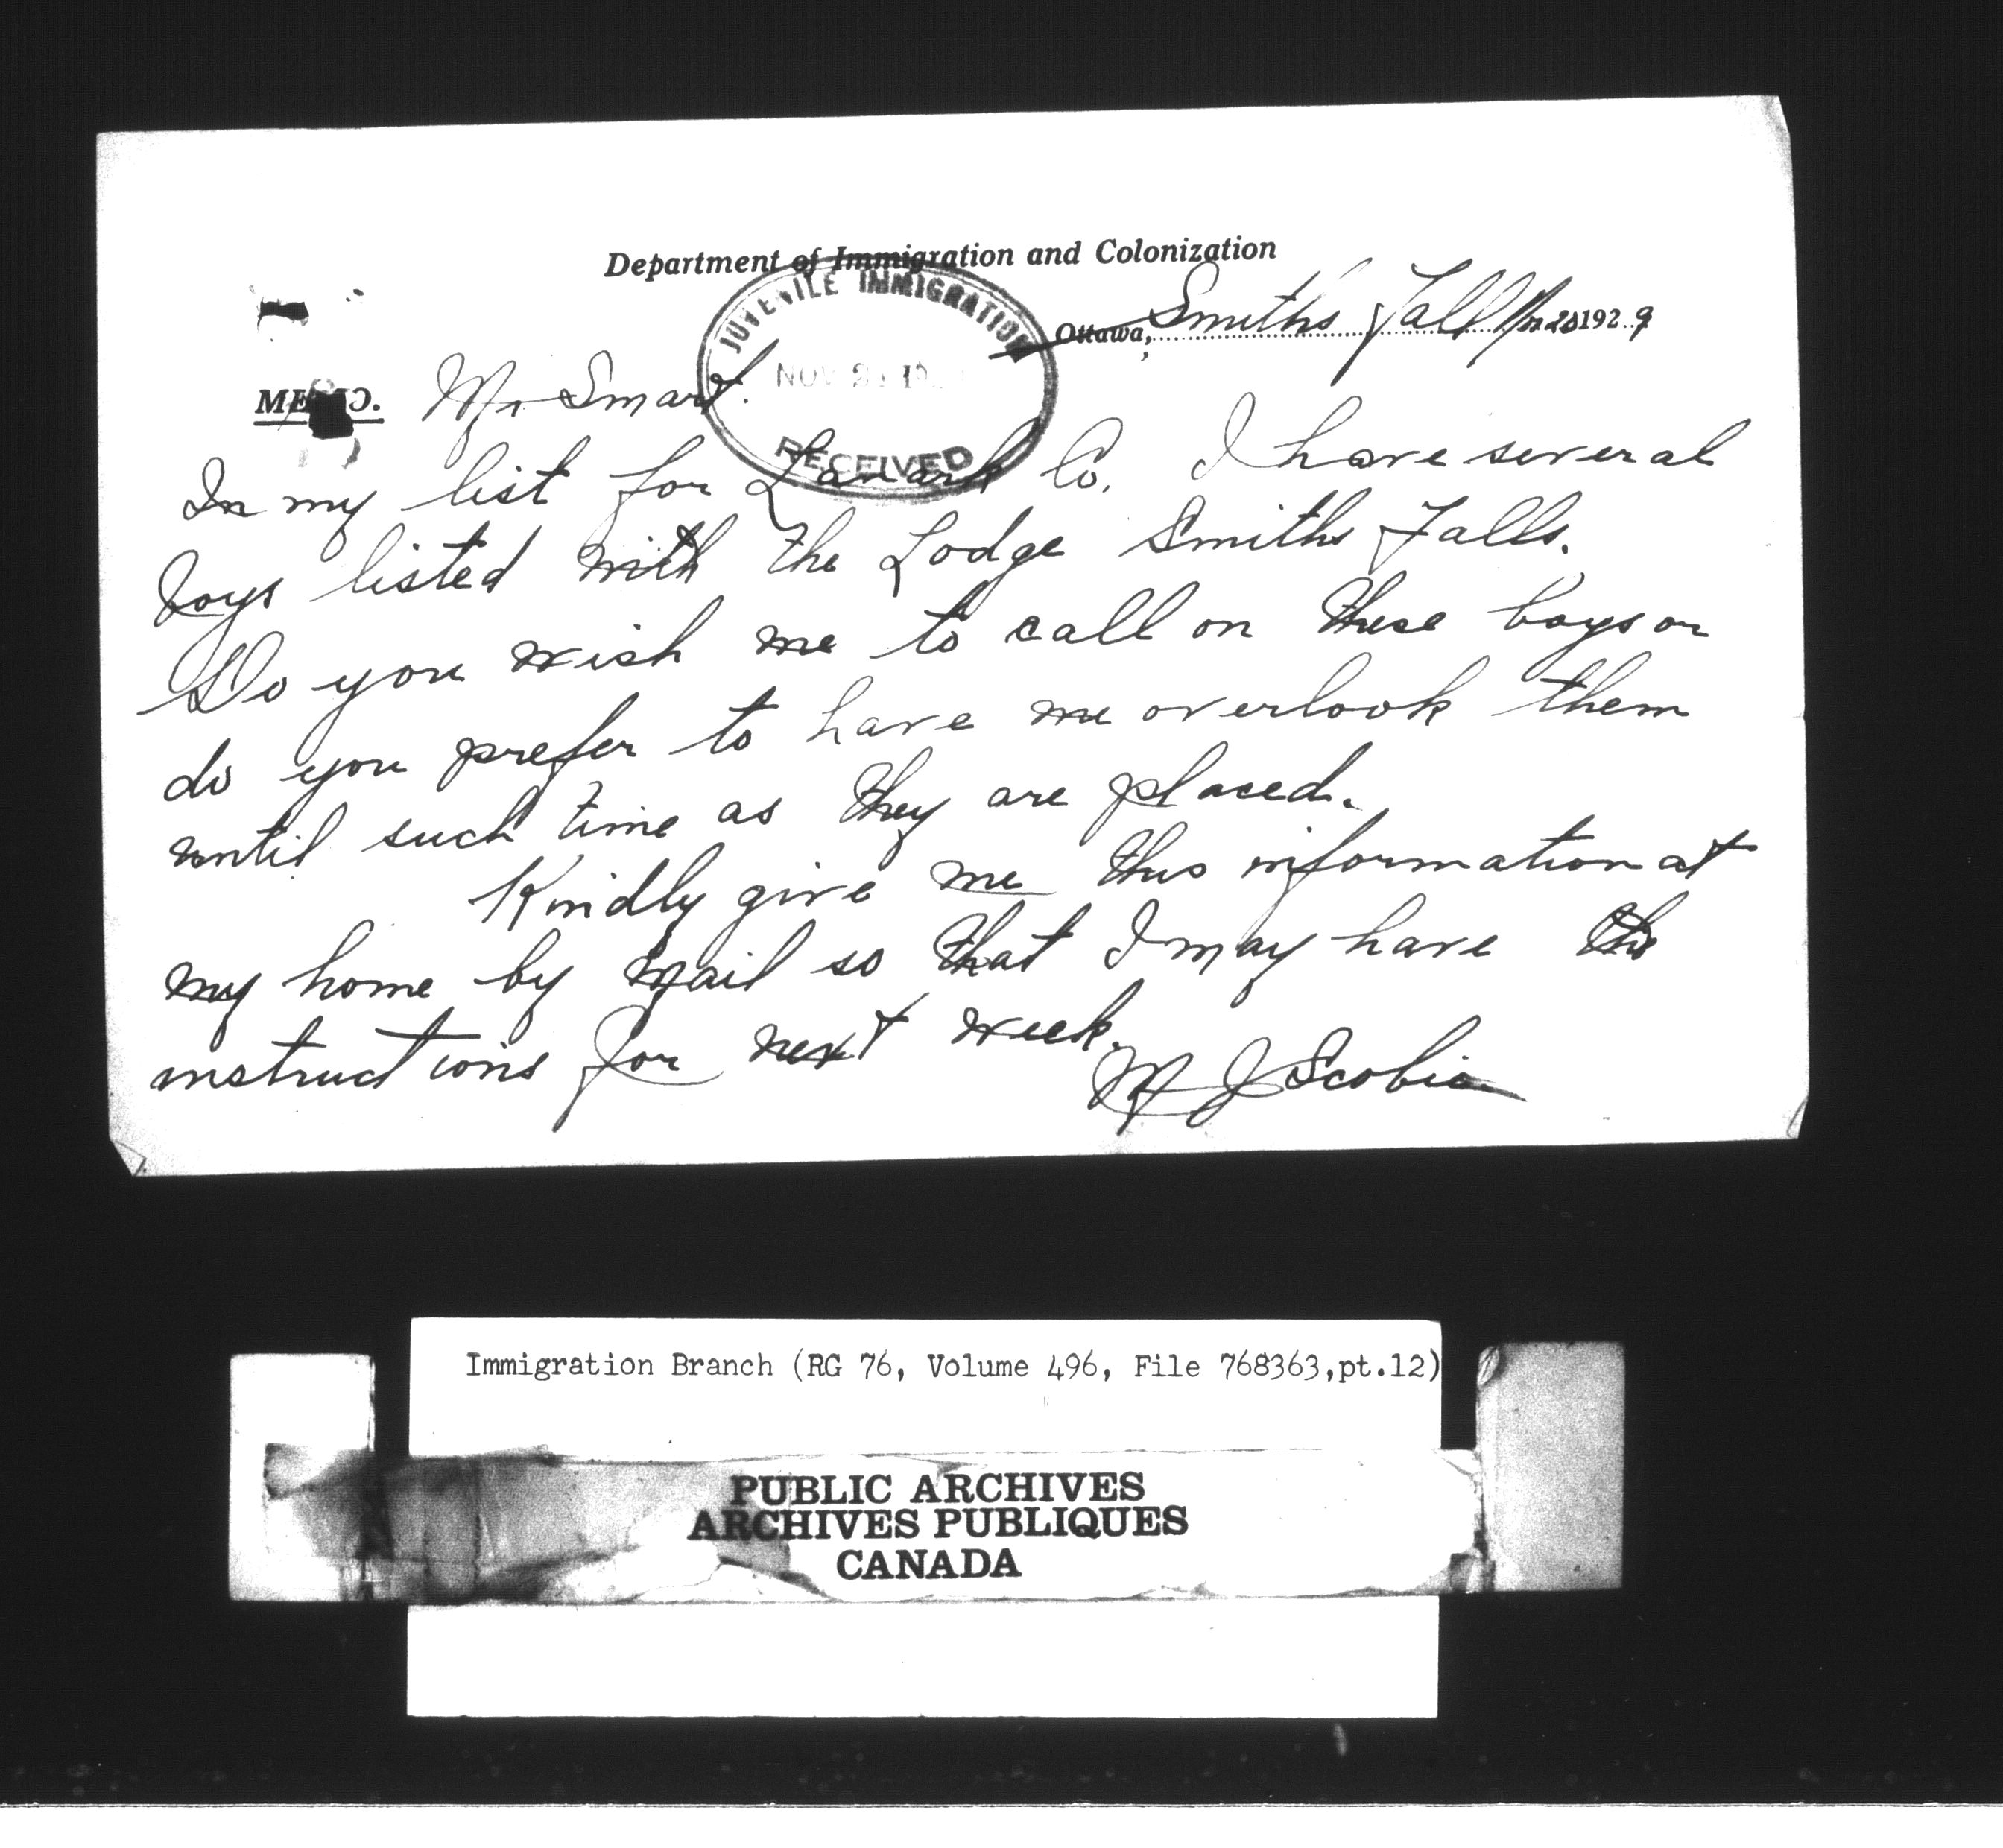 Department of Immigration and Colonization
JUVENILE IMMIGRATION
Ottawa, Smiths Falls 1929
NOV
RECEIVED
MEMO. Mr Smart.
In my list for Lanark Co. I have several
boys listed with the Lodge Smiths Falls.
Do you wish me to call on these boys or
do you prefer to have me overlook them
until such time as they are placed.
Kindly give me this information at
my home by mail so that I may have the
instructions for next week.
M J Scobie
Immigration Branch (RG 76, Volume 496, File 768363,pt.12)
PUBLIC ARCHIVES
ARCHIVES PUBLIQUES
CANADA